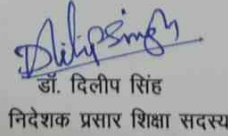 Dilip Singh
डॉ. दिलीप सिंह
निदेशक प्रसार शिक्षा सदस्य